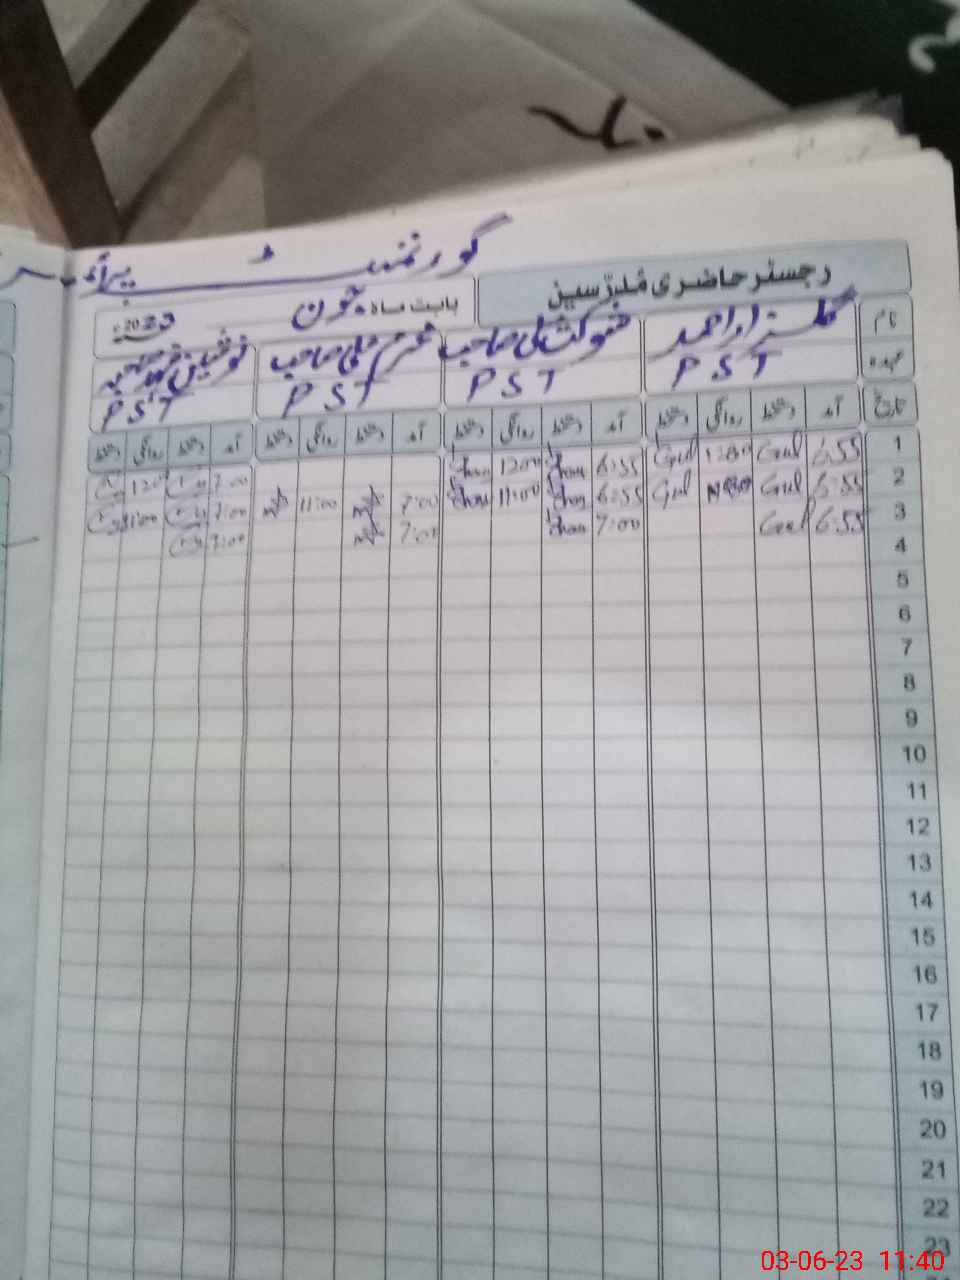 گورنمنٹ پرائمری
رجسٹر حاضری مُدرّسین
بابت ماہ جون 2023ء
نام گلزار احمد شوکت علی صاحب خرم علی صاحب
عہدہ PST PST PST PST
تاریخ آمد دستخط روانگی دستخط آمد دستخط روانگی دستخط آمد دستخط روانگی دستخط آمد دستخط روانگی دستخط
1 6:55 Gul 12:00 Gul 6:55 Shou 12:00 Shou 7:00 12:0
2 6:55 Gul Gul 6:55 Shou 11:00 Shou 7:00 11:00 7:00 11:00
3 6:55 Gul 7:00 Shou 7:00 7:00
4
5
6
7
8
9
10
11
12
13
14
15
16
17
18
19
20
21
22
23
03-06-23 11:40